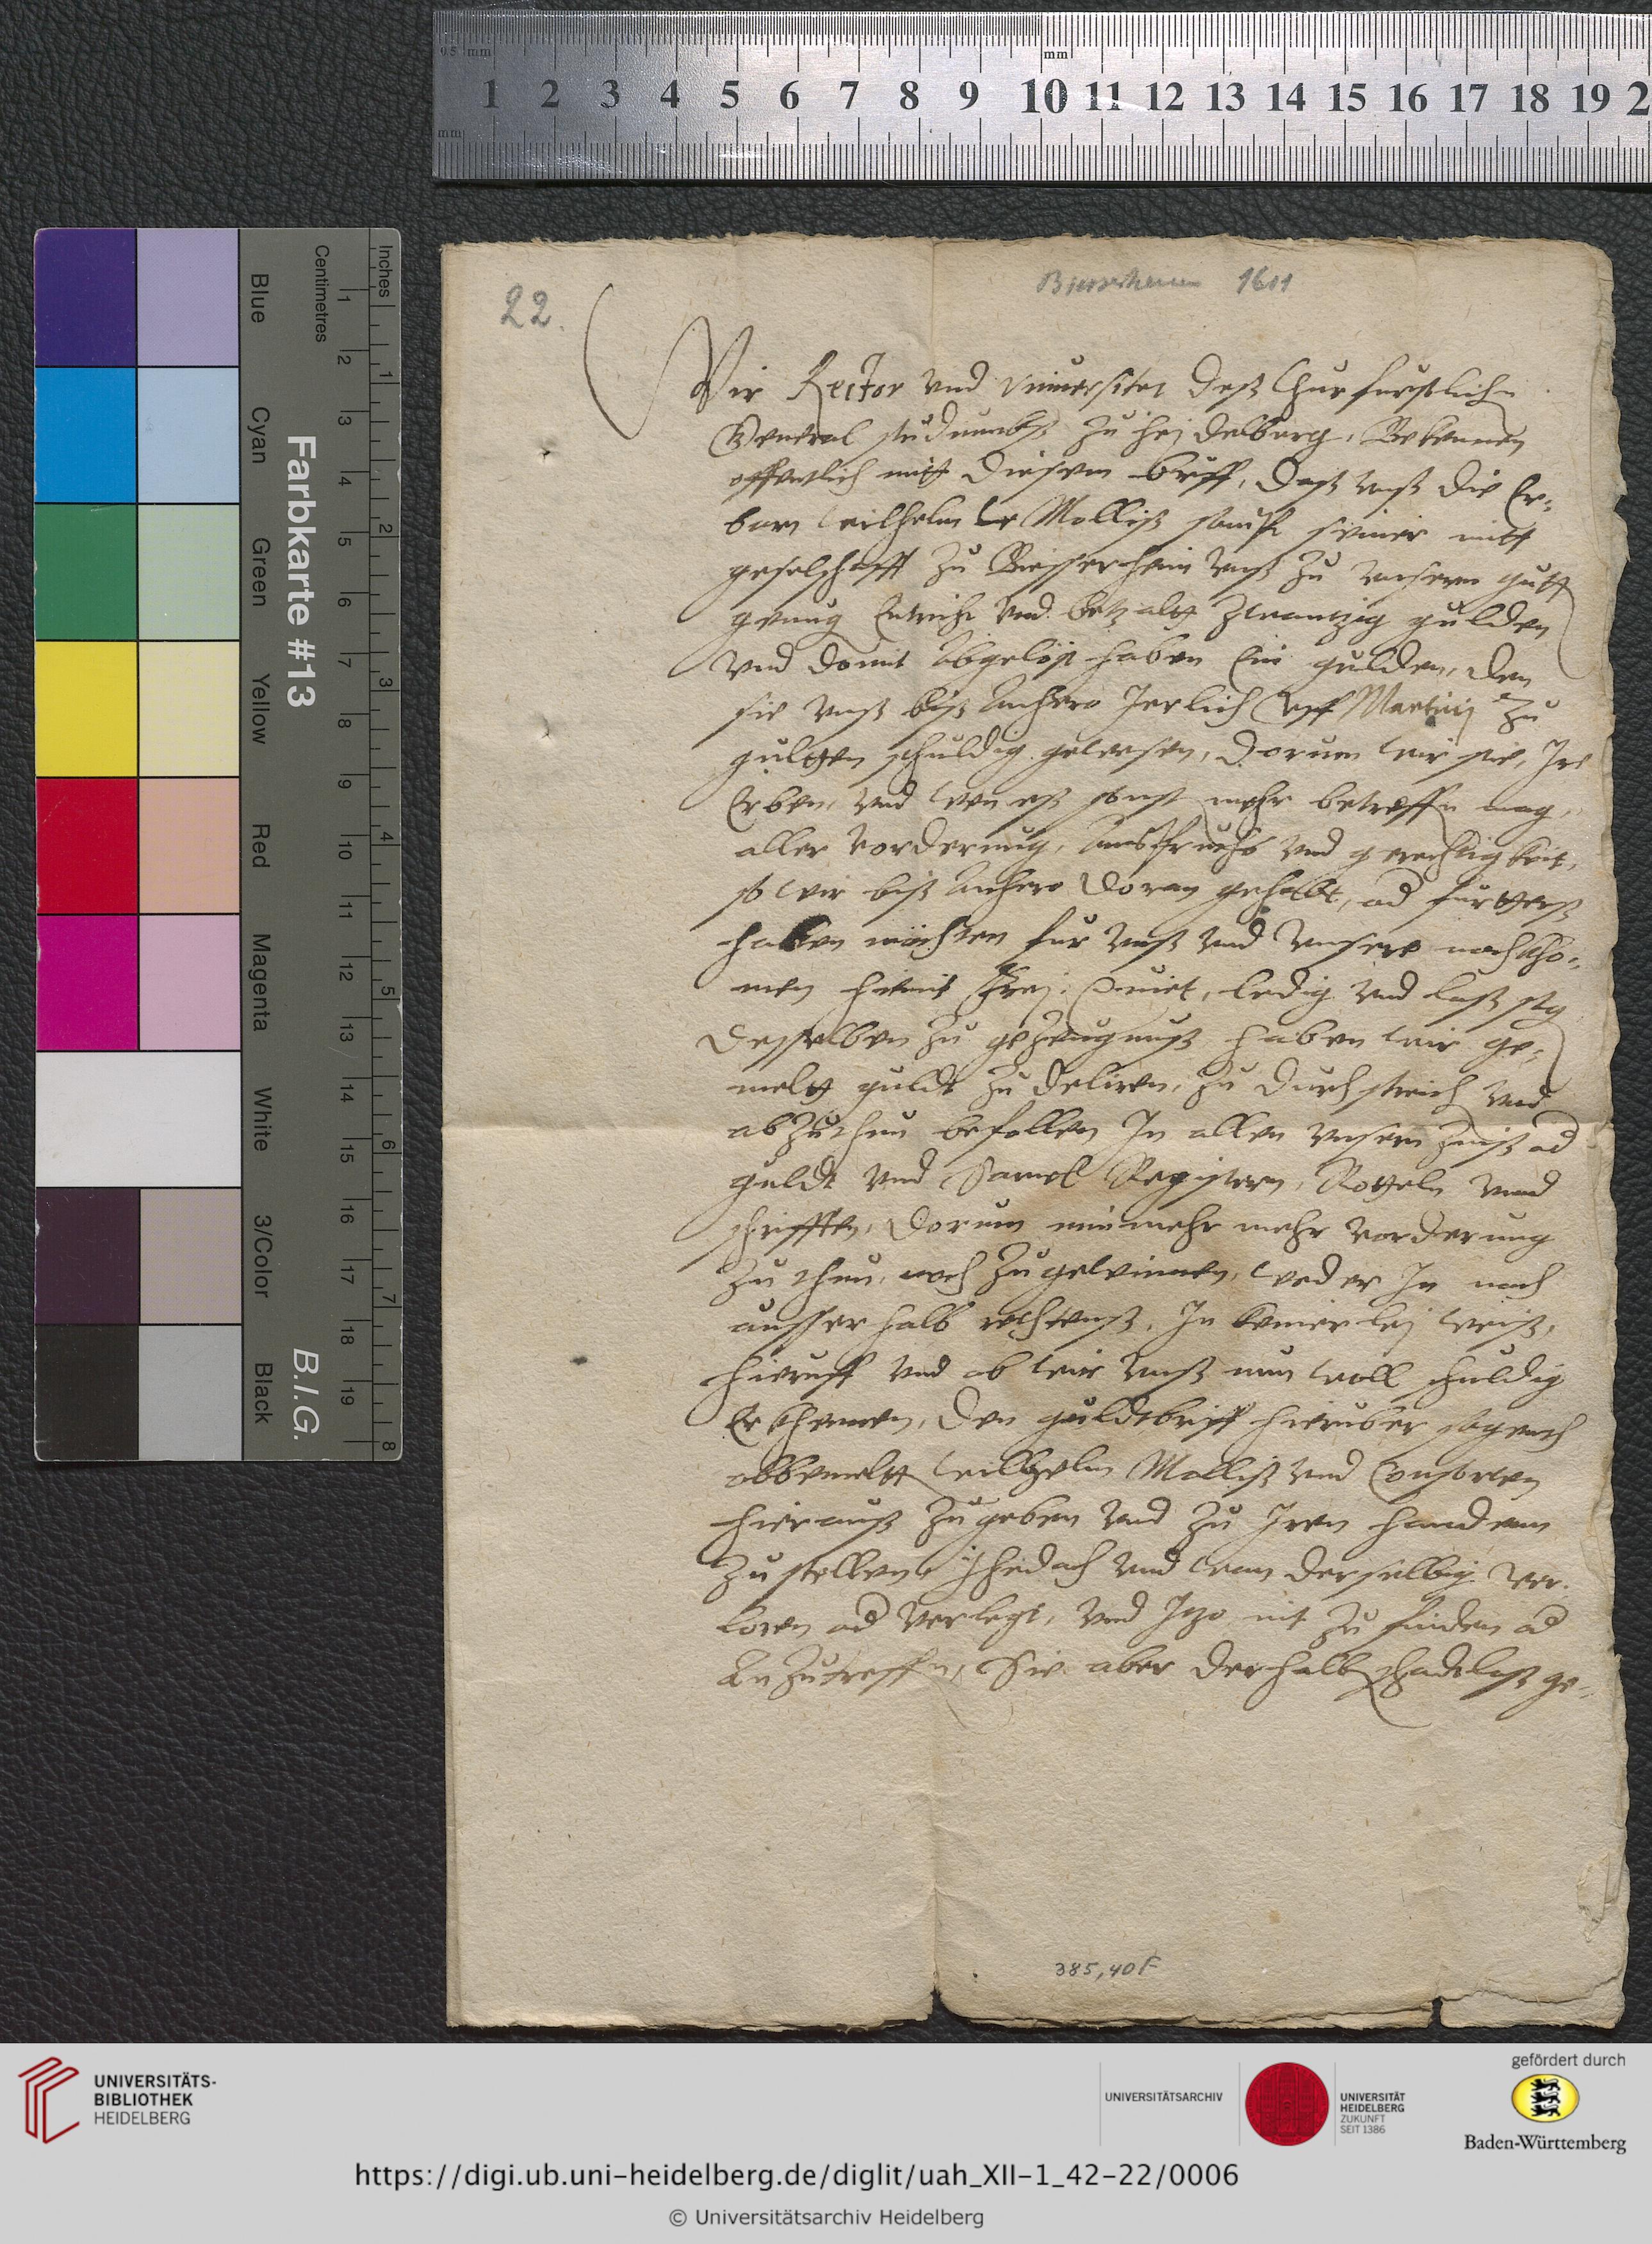 0.5 mm
mm
1 2 3 4 5 6 7 8 9 10 11 12 13 14 15 16 17 18 19 2
mm
Inches
Centimetres
1 2 3 4 5 6 7 8 9 10 11 12 13 14 15 16 17 18 19
1 2 3 4 5 6 7 8
Farbkarte #13
B.I.G.
Blue
Cyan
Green
Yellow
Red
Magenta
White
3/Color
Black
22.
1611
Wir Rector vnd Vniuersitet deß Churfurstlichn
General studiumbß zu Heidelberg, Bekennen
offentlich mitt diesem brieff, daß vnß die Er-
barn Wilhelm Le Molliß sampt seiner mitt
geselschafft zu Biessersheim vnß zu vnserm gutt
genug Entricht vnd betzaltt zwantzig gulden
vnd domit Abgelöst haben Ein gulden, den
sie vnß biß Anhero Jerlich vff Martinj zu
gultten schuldig gewesen, dorum wir sie, Ire
Erben, vnd wen eß sonst mehr betreffn mag,
aller vorderung, Anspruchs vnd gerechtigkeit,
so wir biß Anhero doran gehabt, od furtterß
haben möchten fur vnß vnd vnsere nachkho-
men hiemit frej, Quiet, ledig vnd laß sag
desselben zu gezeugnuß haben wir ge-
meltt guldt zu deliren, zu durchstreich vnd
abzuthun befollen In allen vnsern Zinß od
guldt vnd Samel Registern, Rotteln vnnd
schrifften, dorum nimmehr mehr vorderung
zu thun, noch zugewinnen, weder In noch
ausserhalb rechtenß, In keinerlej weiß,
hieruff vnd ob wir vnß nun woll schuldig
Erkhennen, den guldtbriff hieruber sagend
obbemeltt Wilhelm Molliß vnd Consorten
hierauß zugeben vnd zu Iren handenn
zustellen, Jhedoch vnd wan derselbig ver-
loren od verlegt, vnd Jtzo nit zu finden od
Anzutreffn, Sie aber derhalb schadtloß ge-
385,40 F
UNIVERSITÄTS-
BIBLIOTHEK
HEIDELBERG
UNIVERSITÄTSARCHIV
UNIVERSITÄT
HEIDELBERG
ZUKUNFT
SEIT 1386
gefördert durch
Baden-Württemberg
https://digi.ub.uni-heidelberg.de/diglit/uah_XII-1_42-22/0006
© Universitätsarchiv Heidelberg